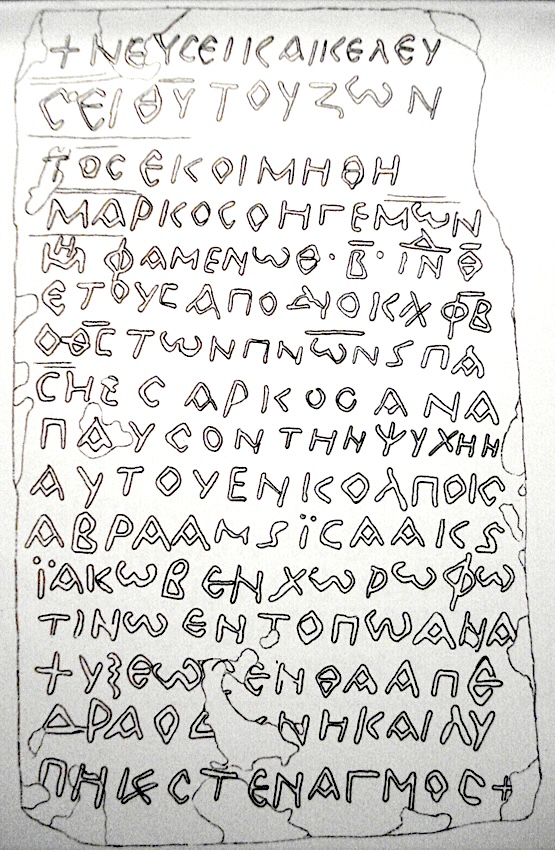 + ΝΕΥϹΕΙ ΚΑΙ ΚΕΛΕΥ
ϹΕΙ Θ̅Υ̅ ΤΟΥ ΖΩΝ
ΤΟϹ ΕΚΟΙΜΗΘΗ
ΜΑΡΚΟϹ Ο ΗΓΕΜΩΝ
ΜΗ ΦΑΜΕΝΩΘ · Β̅ · ΙΝΔ Θ̅
ΕΤΟΥϹ ΑΠΟ ΔΥΟΙΚΧ Φ̅Β̅
Ο Θ̅Ϲ̅ ΤΩΝ ΠΝ̅Ω̅Ν Ϛ ΠΑ
ϹΗϹ ϹΑΡΚΟϹ ΑΝΑ
ΠΑΥϹΟΝ ΤΗΝ ΨΥΧΗΝ
ΑΥΤΟΥ ΕΝ ΚΟΛΠΟΙϹ
ΑΒΡΑΑΜ Ϛ ΪϹΑΑΚ Ϛ
ΪΑΚΩΒ ΕΝ ΧΩΡΩ ΦΩ
ΤΙΝΩ ΕΝ ΤΟΠΩ ΑΝΑ
+ΥΞΕΩ ΕΝΘΑ ΑΠΕ
ΔΡΑ Ο ΝΗ ΚΑΙ ΛΥ
ΠΗ Κ ϹΤΕΝΑΓΜΟϹ +